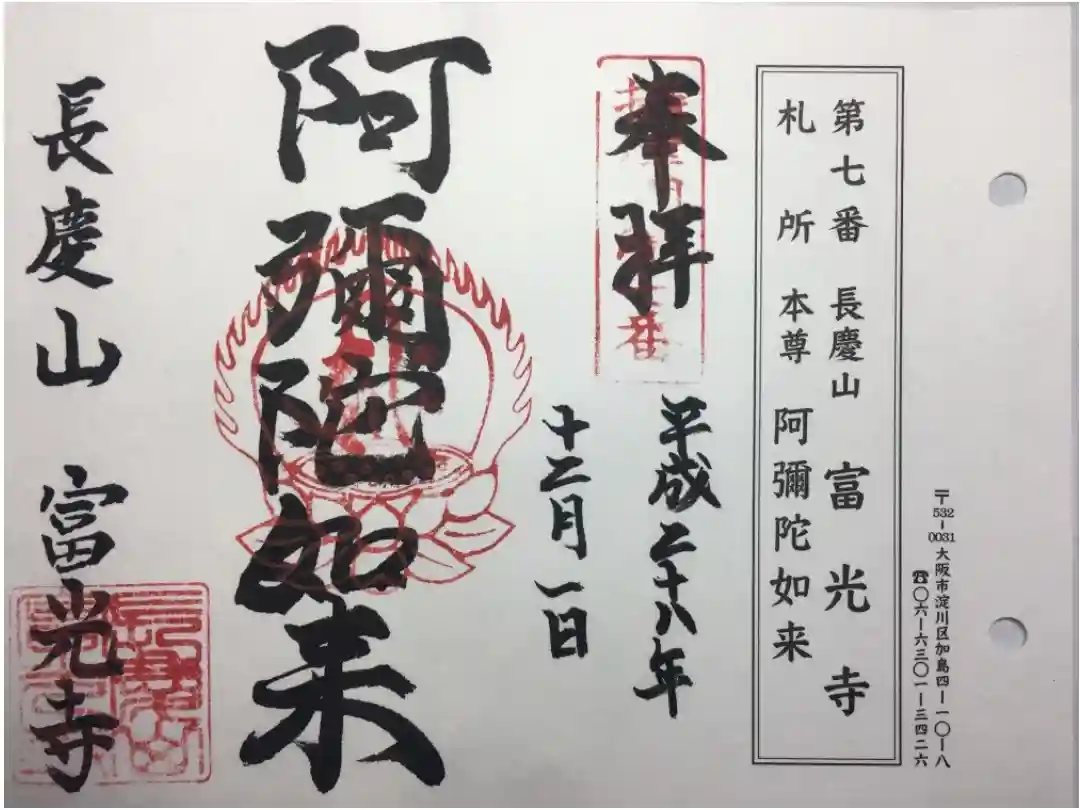 〒532-0031 大阪市淀川区加島四ー一〇ー八
☎〇六ー六三〇一ー三四二六
第七番 長慶山 富光寺
札所 本尊 阿彌陀如来
奉拝 平成二十八年
十二月一日
阿彌陀如来
長慶山 富光寺